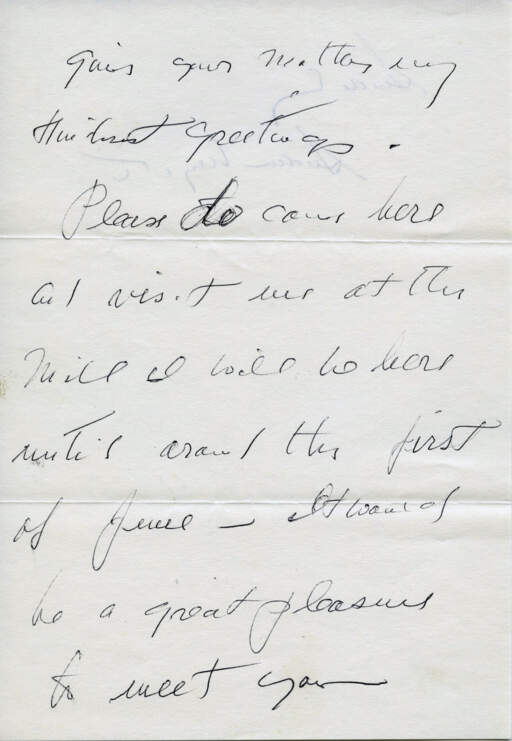 Give your mother my
kindest greetings.
Please do come here
and visit me at the
Mill I will be here
until around the first
of June — It would
be a great pleasure
to meet you —